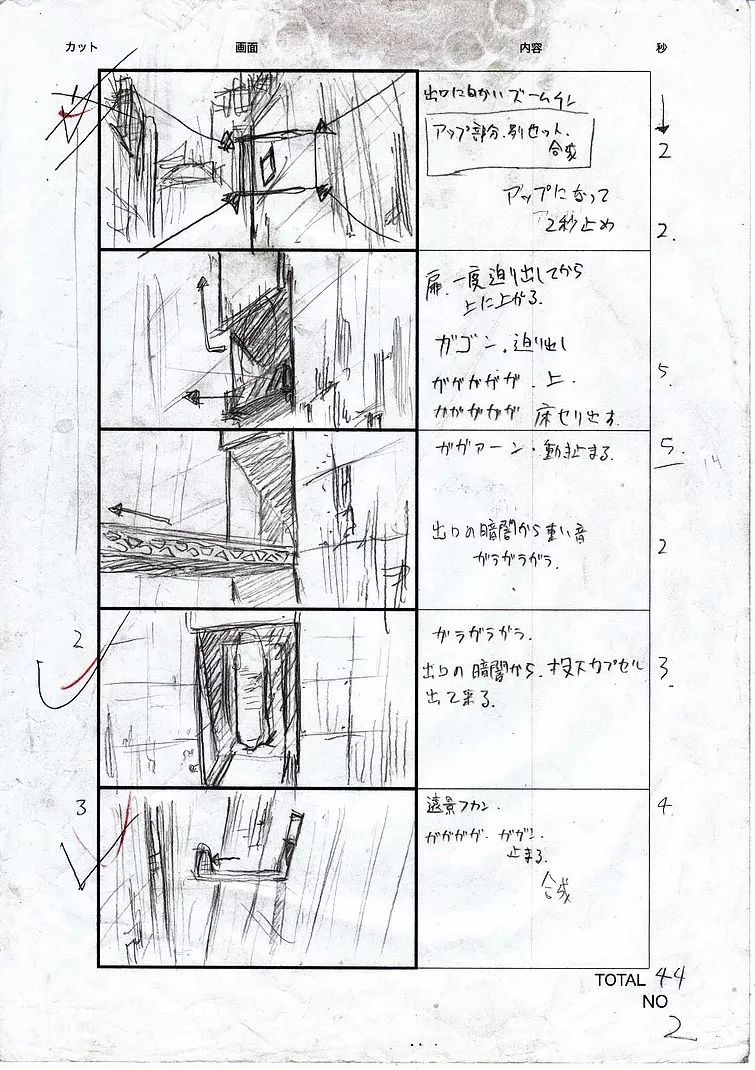 カット 画面 内容 秒
出口に向かいズームイン
アップ部分、別セット、
合成
2
アップになって
2秒止め
2.
扉、一度迫り出してから
上に上がる。
ガゴン、迫り出し
ガガガガガ、上、
5.
ガガガガガ 床セリ出す。
ガガァーン・動き止まる。
5.
14
出口の暗闇から重い音
ガラガラガラ。
2
2
ガラガラガラ。
出口の暗闇から、投下カプセル
出て来る。
3.
3
遠景フカン。
4.
ガガガガ、ガガン、
止まる。
合成
TOTAL 44
NO
2